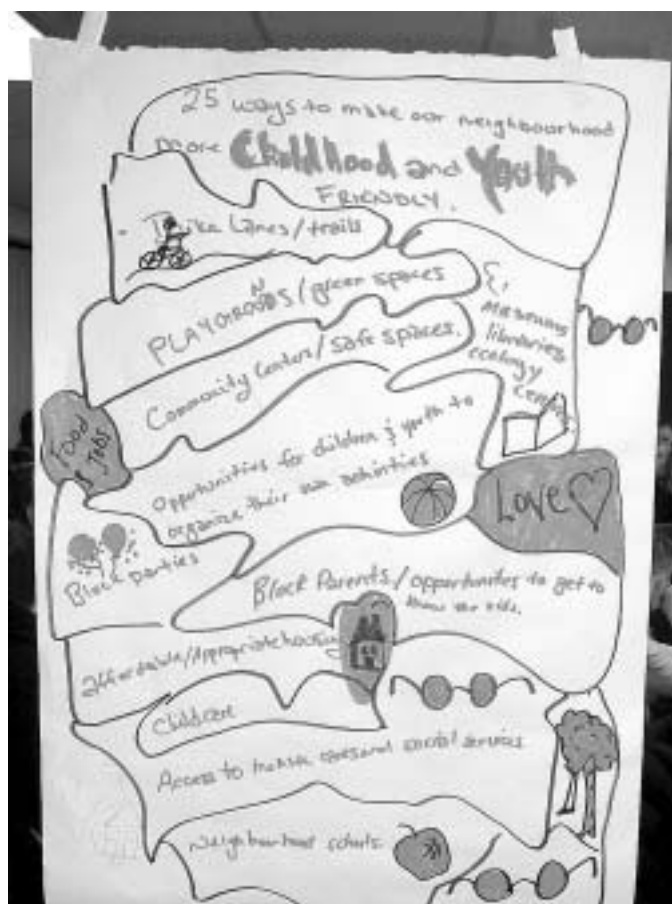 25 ways to make our neighbourhood
more Childhood and Youth
FRIENDLY.
Bike Lanes/trails
PLAYGROUNDS/green spaces
&,
Museums
libraries
ecology
centres
Community Centers/safe spaces.
Food
& Jobs
Opportunities for children & youth to
organize their own activities
LOVE
Block parties
Block Parents/opportunities to get to
know the kids.
affordable/Appropriate housing
Childcare
Access to health care and social services
Neighbourhood schools